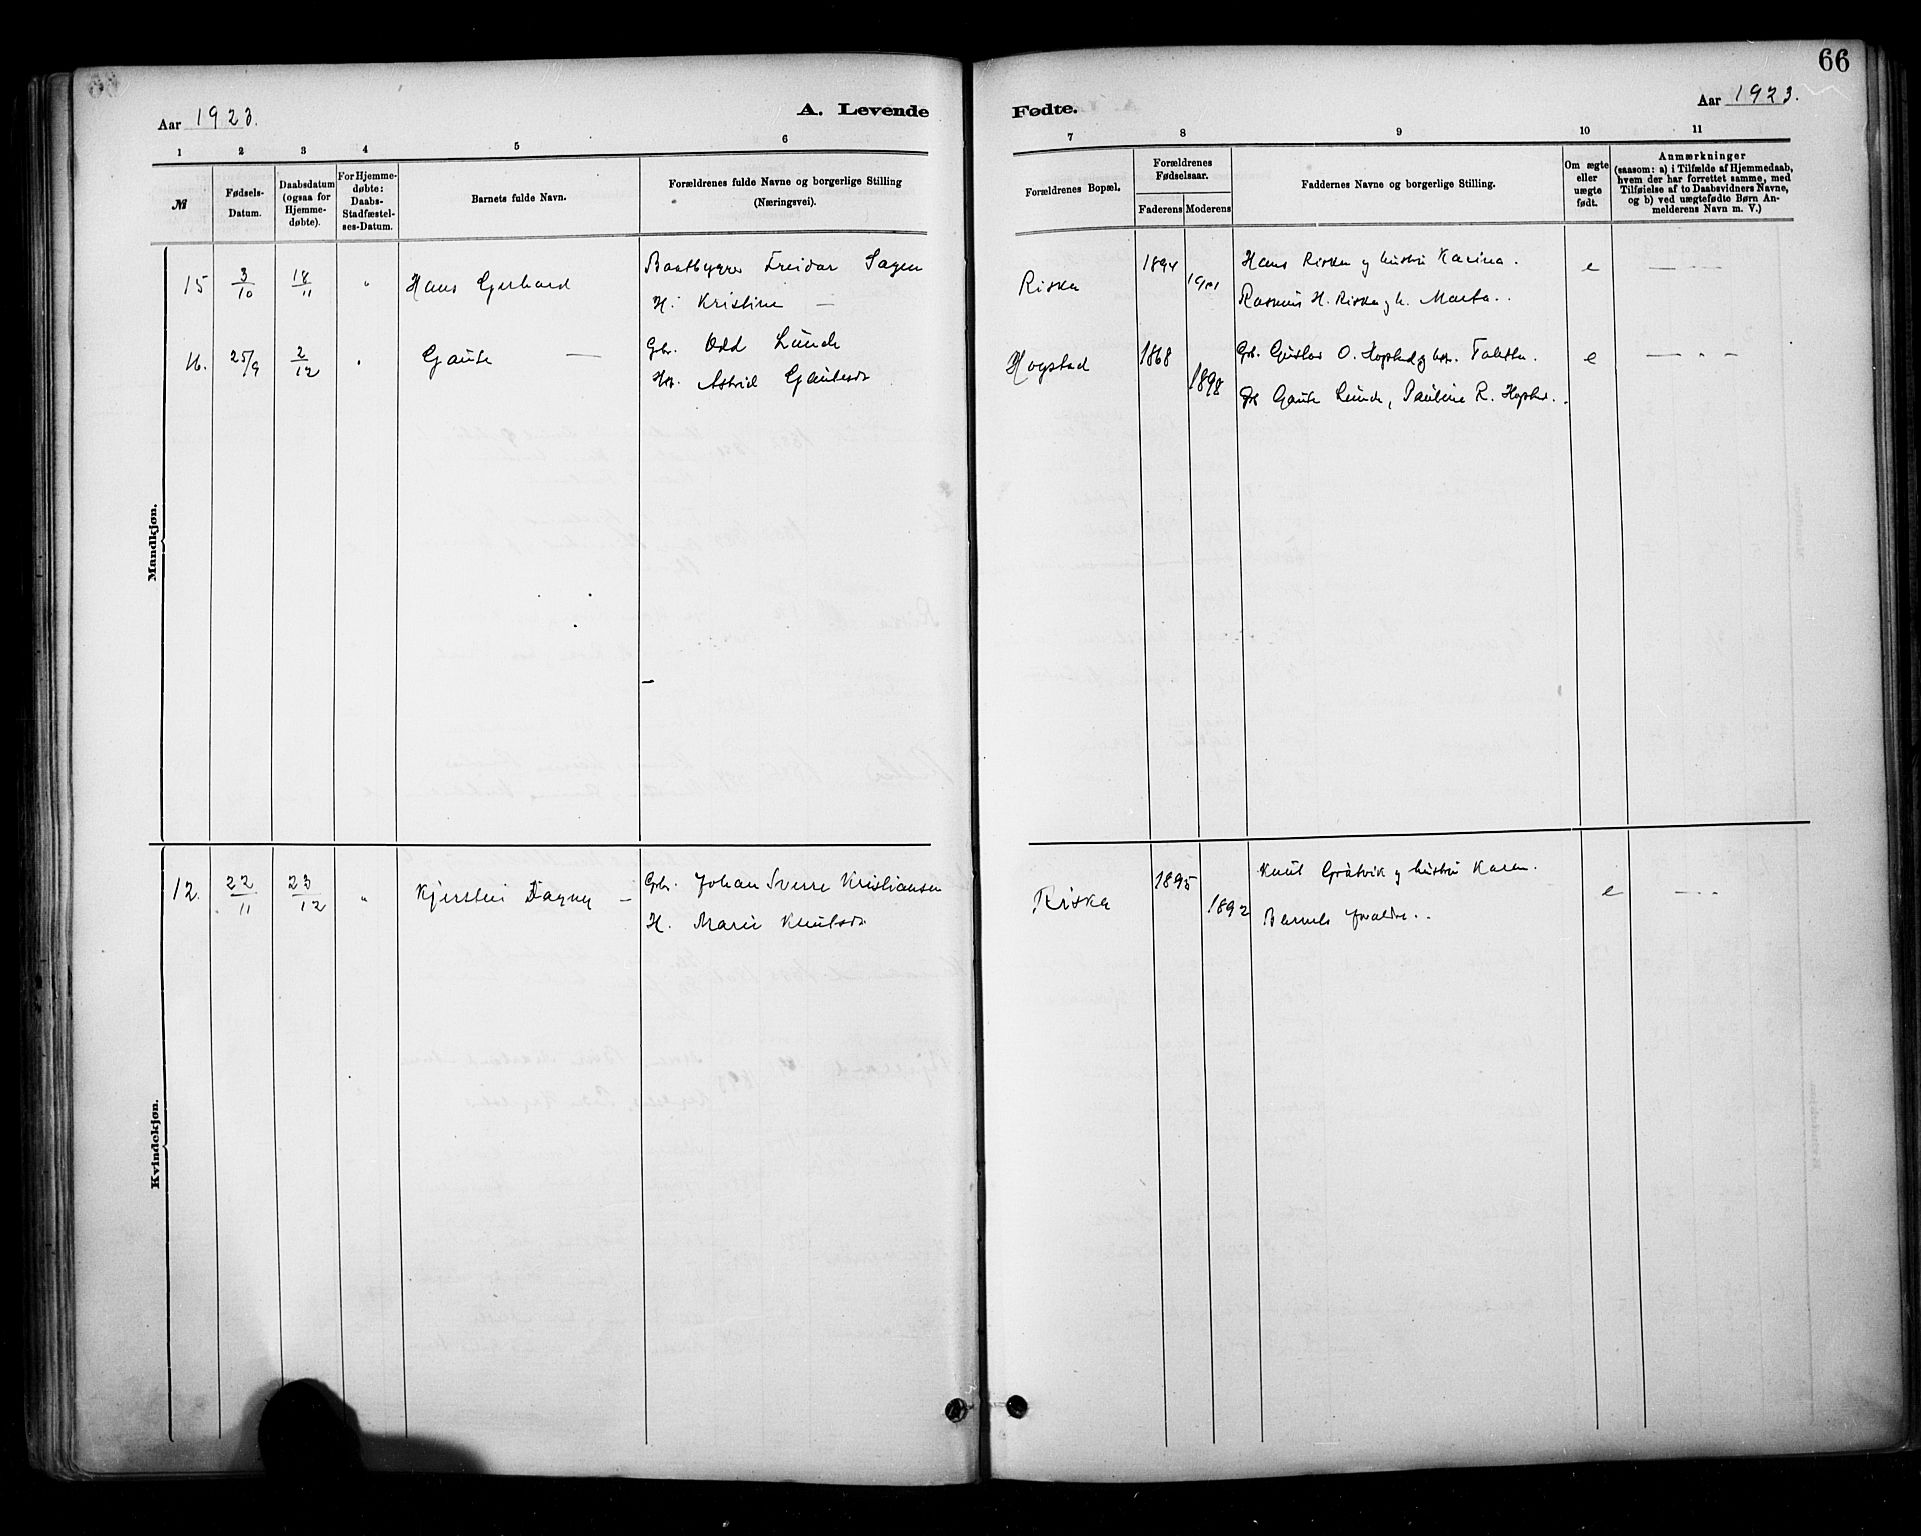 66
Aar 1923.
A. Levende
Fødte.
Aar 1923.
1 2 3 4 5 6 7 8 9 10 11
№
Fødsels-
Datum.
Daabsdatum
(ogsaa for
Hjemme-
døbte).
For Hjemme-
døbte:
Daabs-
Stadfæstel-
ses-Datum.
Barnets fulde Navn.
Forældrenes fulde Navne og borgerlige Stilling
(Næringsvei).
Forældrenes Bopæl.
Forældrenes
Fødselsaar.
Faderens Moderens
Faddernes Navne og borgerlige Stilling.
Om ægte
eller
uægte
født.
Anmærkninger
(saasom: a) i Tilfælde af Hjemmedaab,
hvem der har forrettet samme, med
Tilføielse af to Daabsvidners Navne,
og b) ved uægtefødte Børn An-
melderens Navn m. V.)
Mandkjøn.
15 3/10 18/11 " Hans Gerhard Baatbygger Freidar Sagen Riska 1894 Hans Riska og hustru Karina. e — " —
H. Kristine — 1901 Rasmus H. Riska og h. Marta.
16. 25/9 2/12 " Gaute — Gbr. Odd Lunde Hogstad 1868 Gbr. Gustav O. Hogstad og e — " —
Astrid 1898 Gaute Lunde, Pauline R.
Kvindekjøn.
12. 22/11 23/12 " Kjersten Dagny — Gbr. Johan Sverre Kristiansen Riska 1895 Knut Gråtvik og hustru Karen. e — " —
H. Marie Knutsdr 1892 Barnets foraldre.